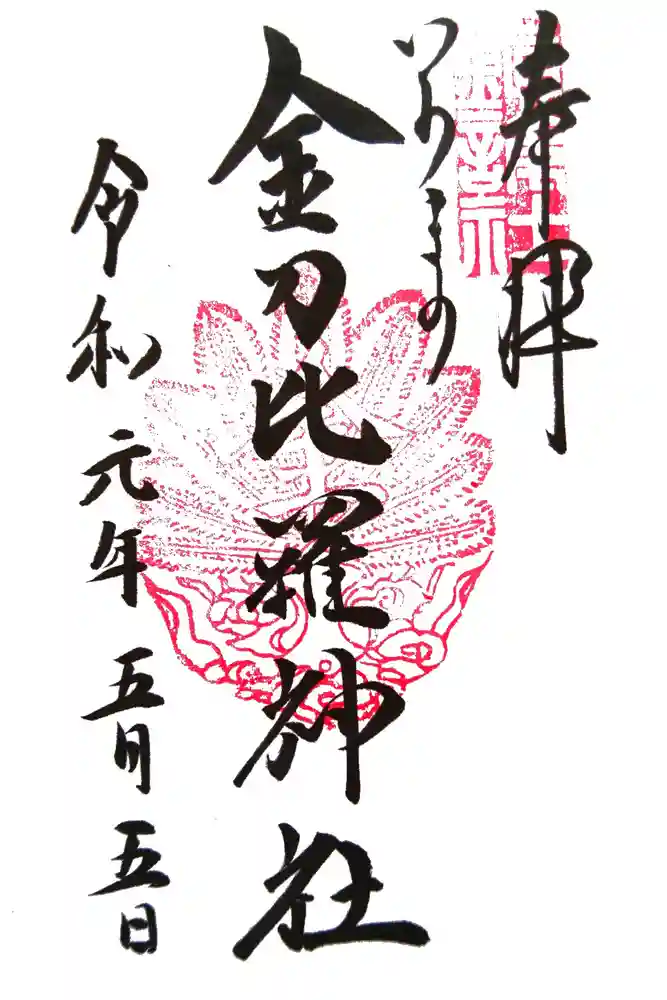 奉拝
金刀比羅神社
令和元年五月五日